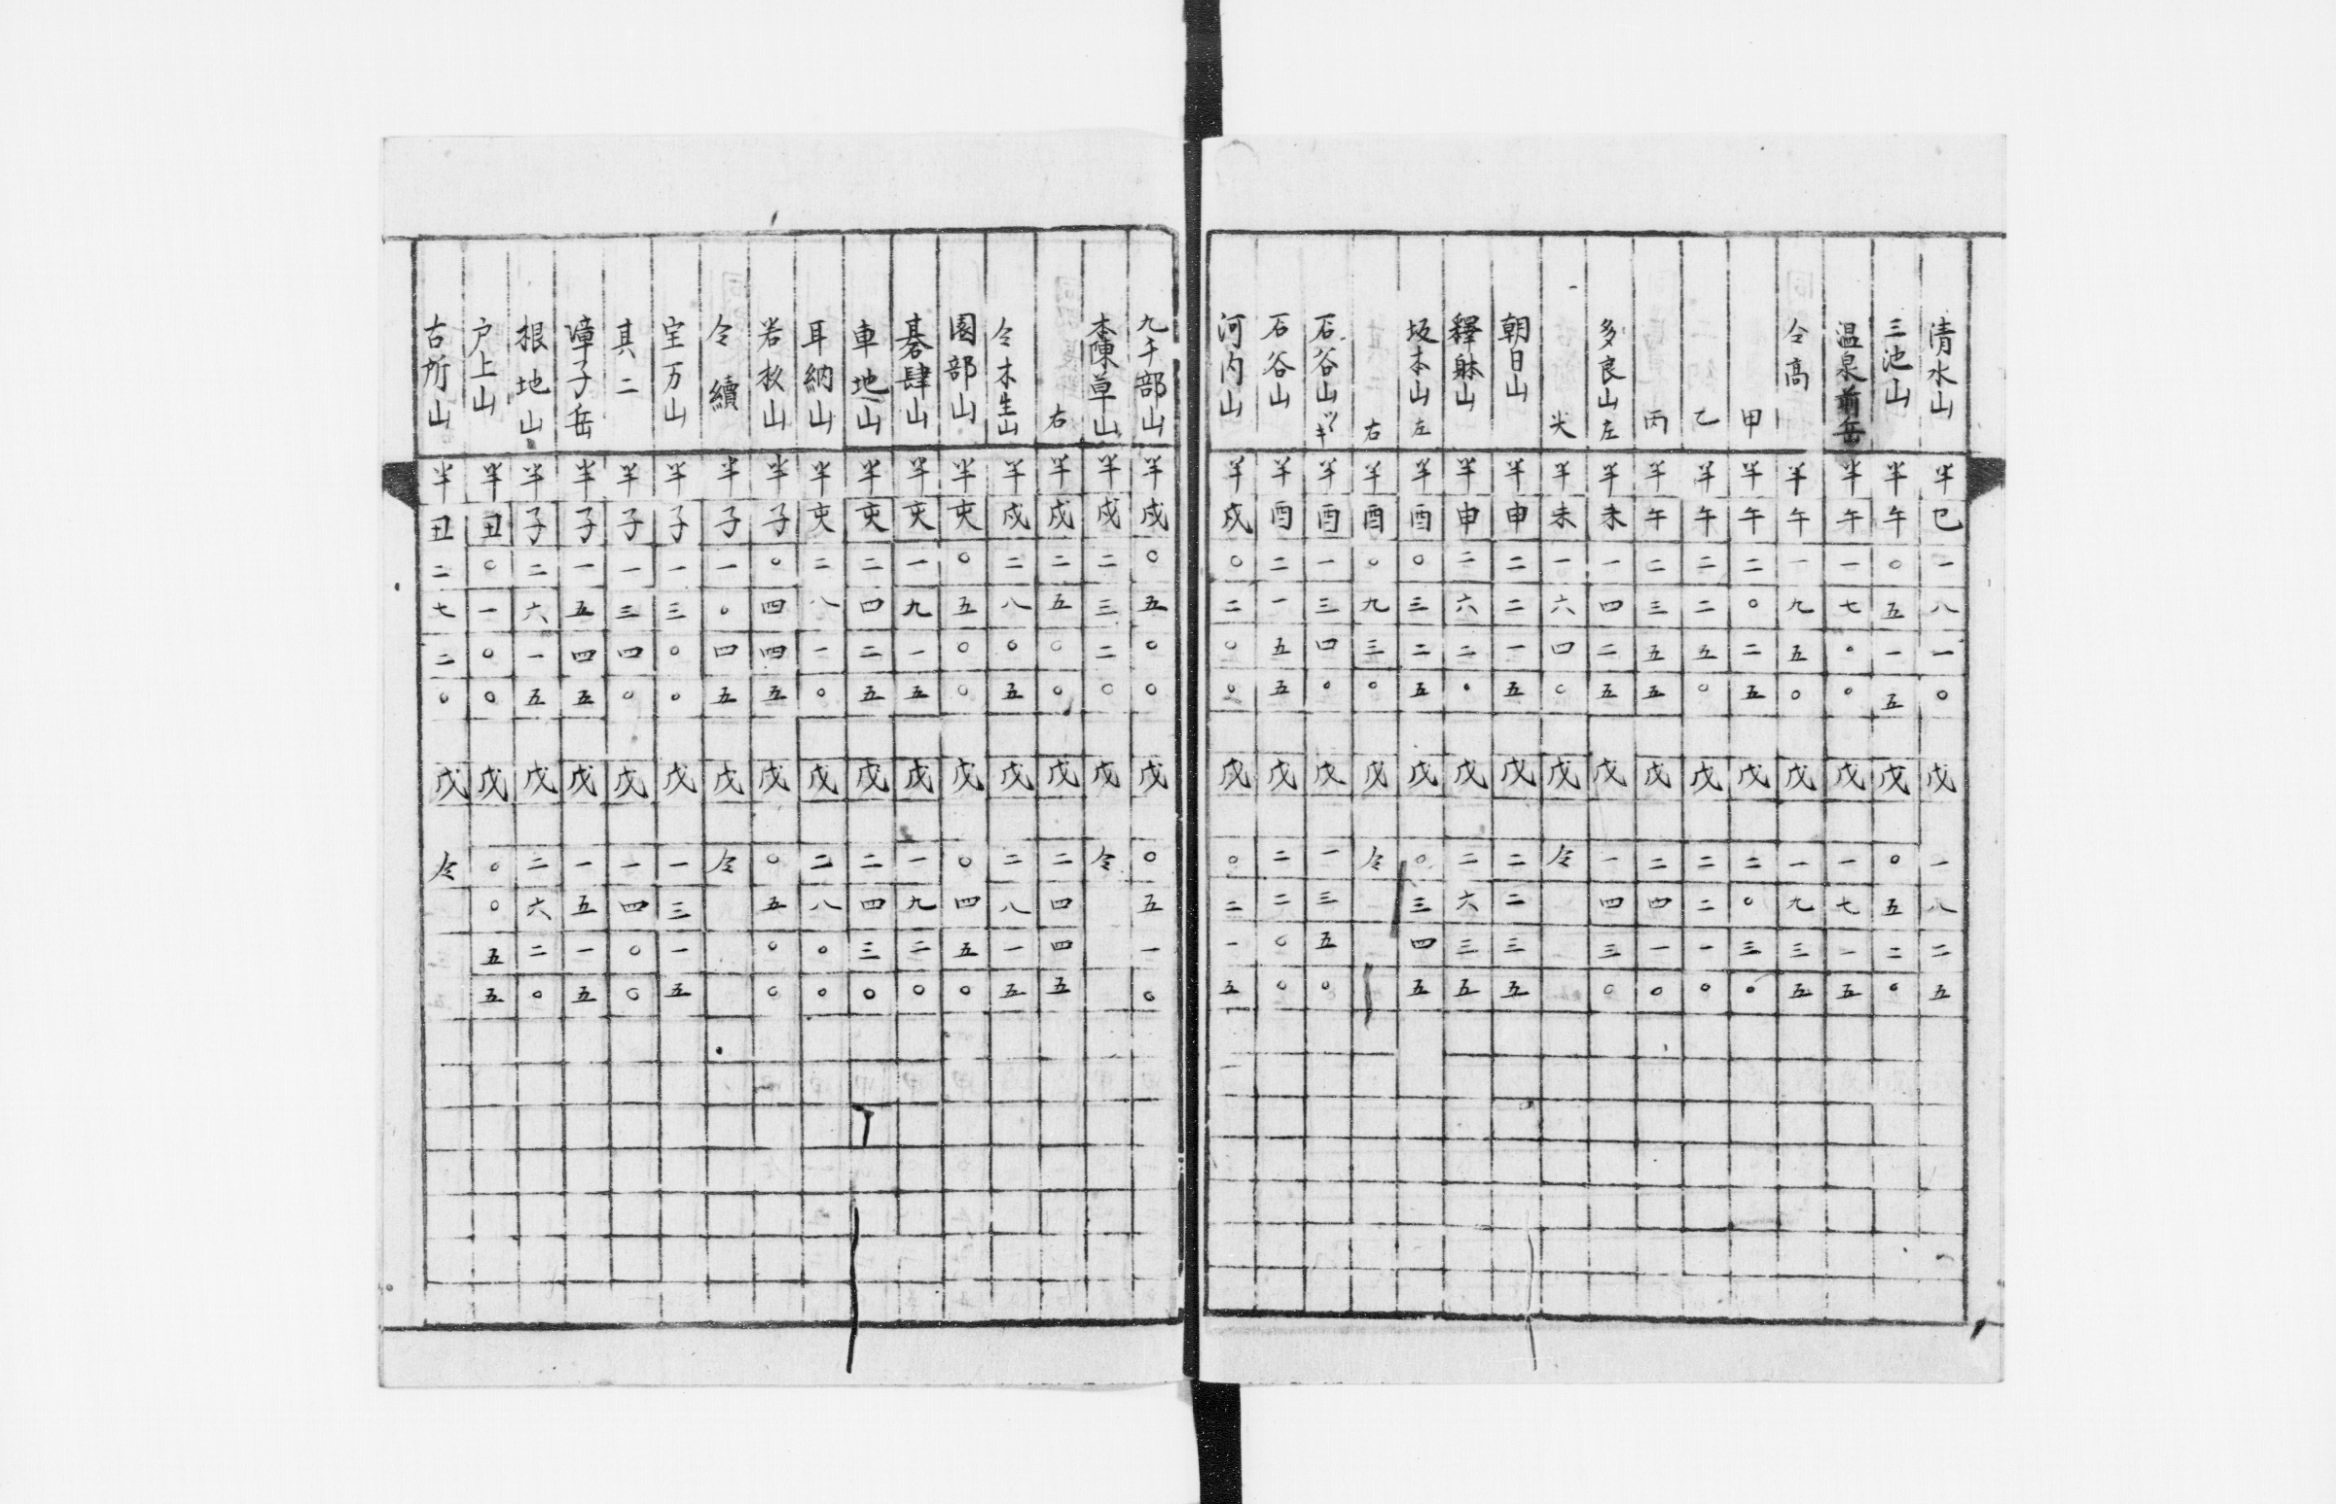 清水山 半巳一八一〇 戊一八二五
三池山 半午〇五一五 戊〇五二〇
温泉前岳 半午一七〇〇 戊一七一五
仝高 半午一九五〇 戊一九三五
甲 半午二〇二五 戊二〇三〇
乙 半午二二五〇 戊二二一〇
丙 半午二三五五 戊二四一〇
多良山左 半未一四二五 戊一四三〇
尖 半未一六四〇 戊仝
朝日山 半申二二一五 戊二二三五
釋躰山 半申二六二〇 戊二六三五
坂本山左 半酉〇三二五 戊〇三四五
右 半酉〇九三〇 戊仝
石谷山 半酉一三四〇 戊一三五〇
石谷山 半酉二一五五 戊二二〇〇
河内山 半戌〇二〇〇 戊〇二一五
九千部山 半戌〇五〇〇 戊〇五一〇
本陳草山 半戌二三二〇 戊仝
右 半戌二五〇〇 戊二四四五
仝木生山 半戌二八〇五 戊二八一五
園部山 半亥〇五〇〇 戊〇四五〇
碁肆山 半亥一九一五 戊一九二〇
車地山 半亥二四二五 戊二四三〇
耳納山 半亥二八一〇 戊二八〇〇
岩杖山 半子〇四四五 戊〇五〇〇
仝續 半子一〇四五 戊仝
宝万山 半子一三〇〇 戊一三一五
其二 半子一三四〇 戊一四〇〇
障子岳 半子一五四五 戊一五一五
根地山 半子二六一五 戊二六二〇
戸上山 半丑〇一〇〇 戊〇〇五五
古所山 半丑二七二〇 戊仝